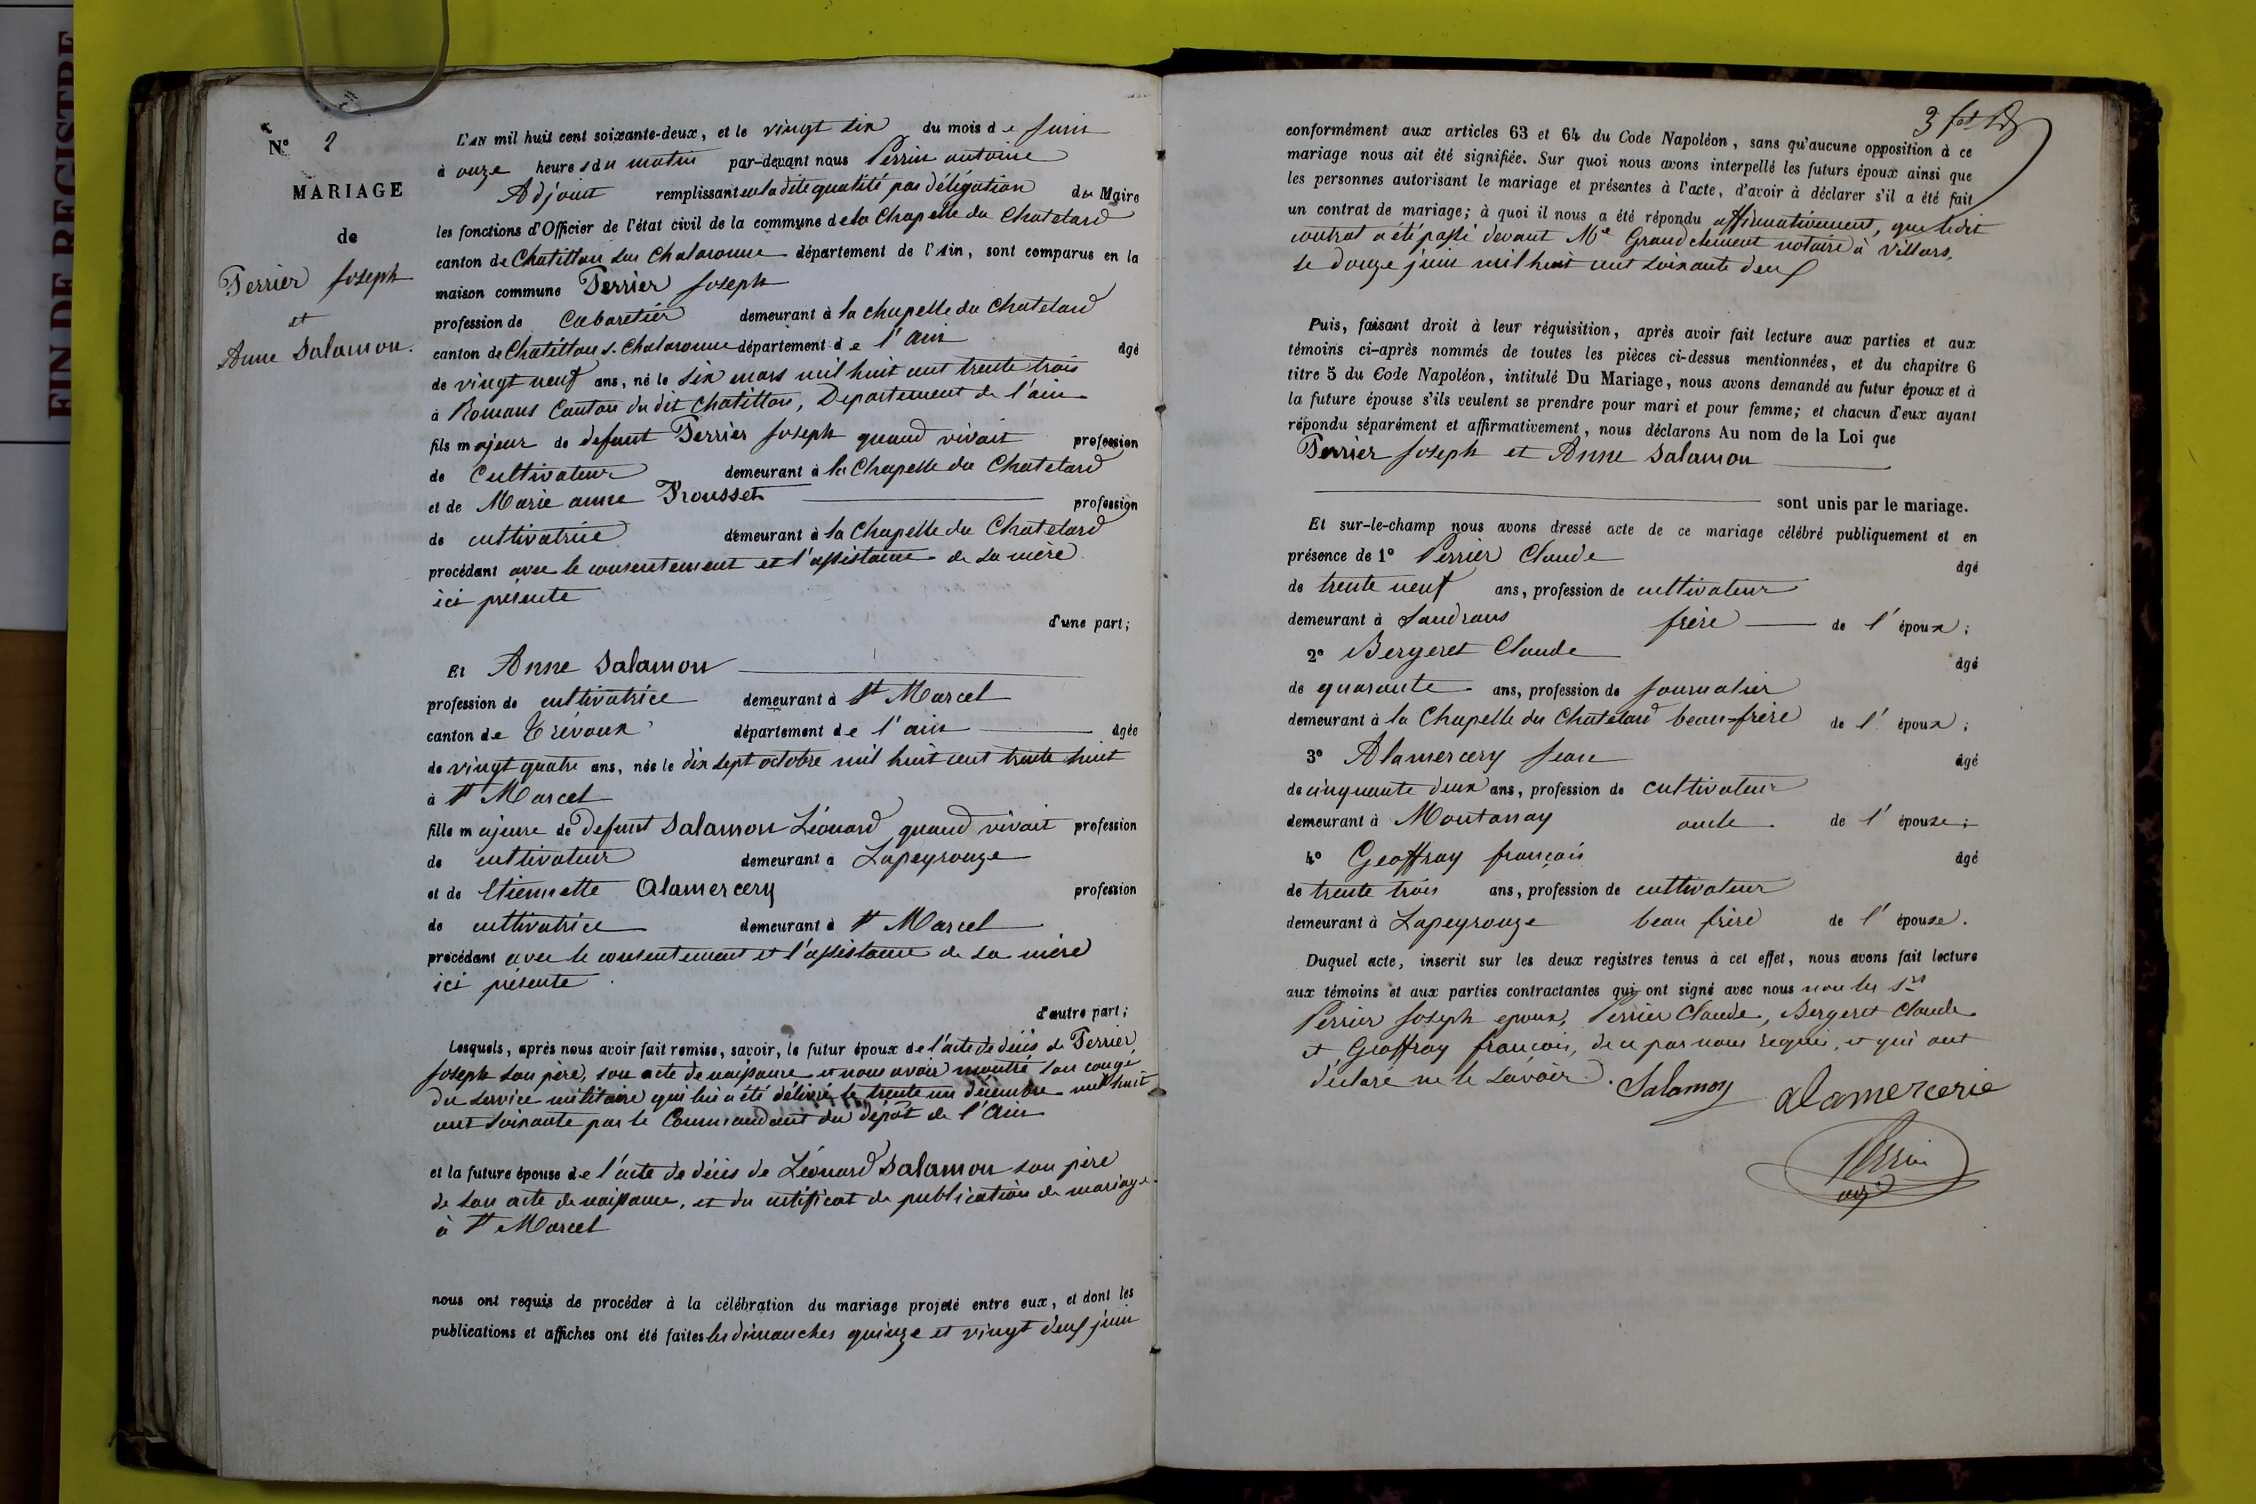 FIN DE REGISTRE
N° 2
MARIAGE
de
Perrier Joseph
et
Anne Salamon.
L'AN mil huit cent soixante-deux, et le vingt six du mois de Juin
à onze heures du matin par-devant nous Perrin antoine
Adjoint remplissant en la dite qualité par délégation du Maire
les fonctions d'Officier de l'état civil de la commune de la Chapelle du Chatelard
canton de Chatillon sur Chalaronne département de l'Ain, sont comparus en la
maison commune Perrier Joseph
profession de Cabaretier demeurant à la chapelle du Chatelard
canton de Chatillon s. Chalaronne département de l'Ain âgé
de vingt neuf ans, né le six mars mil huit cent trente trois
à Romans Canton du dit Chatillon, Departement de l'ain
fils majeur de defunt Perrier Joseph quand vivait profession
de Cultivateur demeurant à la Chapelle du Chatelard
et de Marie anne Prousset profession
de cultivatrice demeurant à la Chapelle du Chatelard
procédant avec le consentement et l'assistance de sa mère
ici présente
d'une part;
Et Anne Salamon
profession de cultivatrice demeurant à St Marcel
canton de Trévoux département de l'ain âgée
de vingt quatre ans, née le dix sept octobre mil huit cent trente huit
à St Marcel
fille majeure de Defunt Salamon Léonard quand vivait profession
de cultivateur demeurant à Lapeyrouze
et de Etiennette Alamercery profession
de cultivatrice demeurant à St Marcel
procédant avec le consentement et l'assistance de sa mère
ici présente
d'autre part;
Lesquels, après nous avoir fait remise, savoir, le futur époux de l'acte de décès de Perrier
Joseph son père, son acte de naissance et nous avoir montré son congé
du service militaire qui lui a été délivré le trente un décembre mil huit
cent soixante par le Commandant du dépôt de l'Ain
et la future épouse de l'acte de décès de Léonard Salamon son père
de son acte de naissance, et du certificat de publication de mariage
à St Marcel
nous ont requis de procéder à la célébration du mariage projeté entre eux, et dont les
publications et affiches ont été faites les dimanches quinze et vingt deux juin
3
conformément aux articles 63 et 64 du Code Napoléon, sans qu'aucune opposition à ce
mariage nous ait été signifiée. Sur quoi nous avons interpellé les futurs époux ainsi que
les personnes autorisant le mariage et présentes à l'acte, d'avoir à déclarer s'il a été fait
un contrat de mariage; à quoi il nous a été répondu affirmativement, que ledit
contrat a été passé devant Me Grandclement notaire à Villars,
le douze juin mil huit cent soixante deux
Puis, faisant droit à leur réquisition, après avoir fait lecture aux parties et aux
témoins ci-après nommés de toutes les pièces ci-dessus mentionnées, et du chapitre 6
titre 5 du Code Napoléon, intitulé Du Mariage, nous avons demandé au futur époux et à
la future épouse s'ils veulent se prendre pour mari et pour femme; et chacun d'eux ayant
répondu séparément et affirmativement, nous déclarons Au nom de la Loi que
Perrier Joseph et Anne Salamon
sont unis par le mariage.
Et sur-le-champ nous avons dressé acte de ce mariage célébré publiquement et en
présence de 1° Perrier Claude âgé
de trente neuf ans, profession de cultivateur
demeurant à Sandrans frère de l'époux;
2° Bergeret Claude âgé
de quarante ans, profession de Journalier
demeurant à la Chapelle du Chatelard beau-frère de l'époux;
3° Alamercery Jean âgé
de cinquante deux ans, profession de cultivateur
demeurant à Montanay oncle de l'épouse;
4° Geoffray françois âgé
de trente trois ans, profession de cultivateur
demeurant à Lapeyrouze beau frère de l'épouse.
Duquel acte, inscrit sur les deux registres tenus à cet effet, nous avons fait lecture
aux témoins et aux parties contractantes qui ont signé avec nous non les Srs
Perrier Joseph epoux, Perrier Claude, Bergeret Claude
et Geoffray francois, de ce par nous requis, et qui ont
déclaré ne le savoir. Salamon alamercerie
Perrin